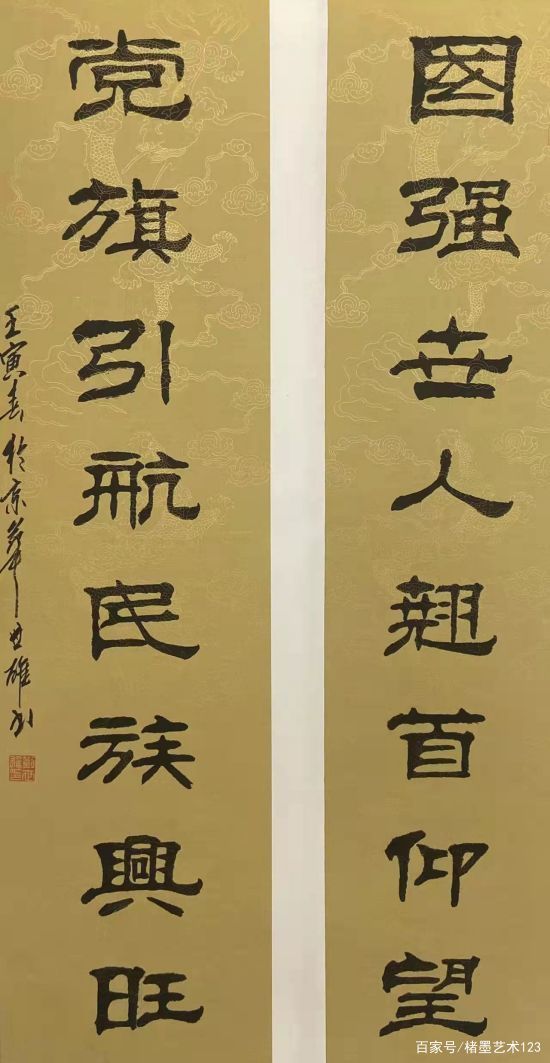 國强世人翘首仰望
党旗引航民族興旺
壬寅春於京華世雄书
百家号/楮墨艺术123